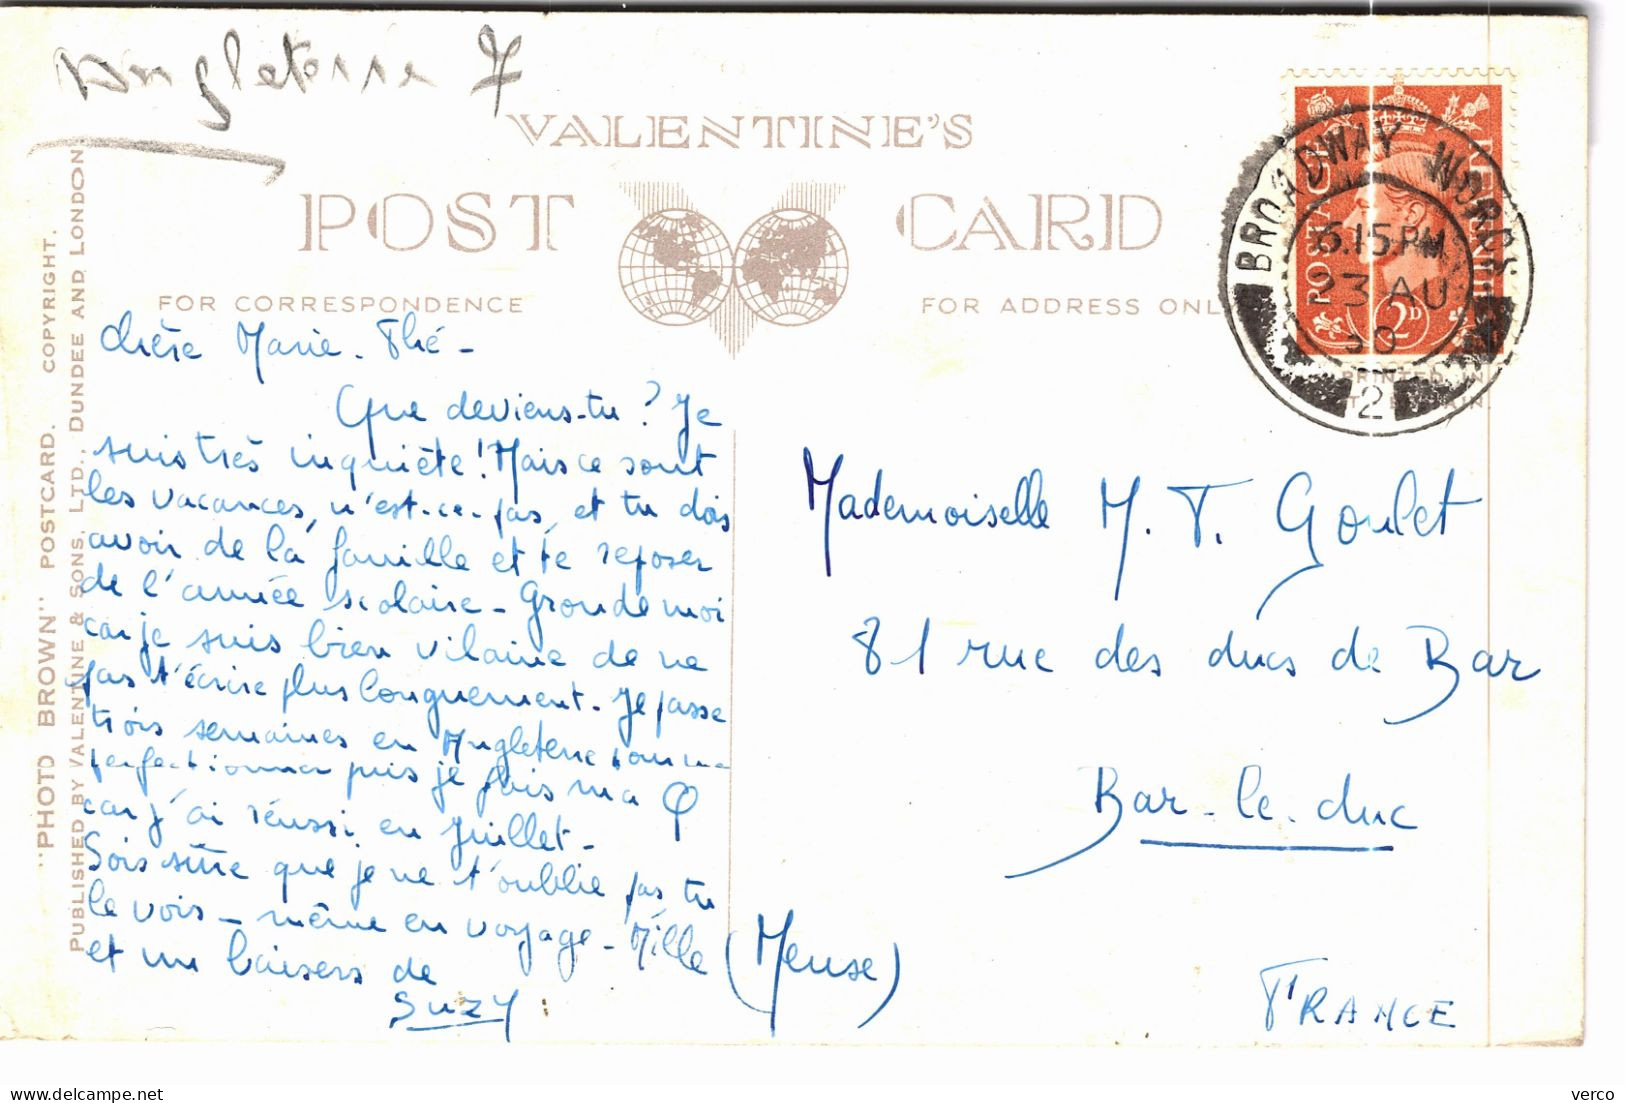 Angleterre 7
VALENTINE'S
POST CARD
FOR CORRESPONDENCE
FOR ADDRESS ONL
"PHOTO BROWN" POSTCARD. COPYRIGHT.
PUBLISHED BY VALENTINE & SONS, LTD., DUNDEE AND LONDON
POSTAGE REVENUE
2D
BROADWAY WORCS
6.15 PM
23 AU
50
2
PRINTED IN
Chère Marie-Thé -
Que deviens-tu ? Je
suis très inquiète ! Mais ce sont
les vacances, n'est-ce-pas, et tu dois
avoir de la famille et te reposer
de l'année scolaire - Gronde moi
car je suis bien vilaine de ne
pas t'écrire plus longuement. Je passe
trois semaines en Angleterre pour me
perfectionner puis je fais ma φ
car j'ai réussi en Juillet -
Sois sûre que je ne t'oublie pas tu
le vois - même en voyage - Mille
et un baisers de
Suzy
Mademoiselle M. T. Goulet
81 rue des ducs de Bar
Bar-le-duc
(Meuse)
FRANCE
verco